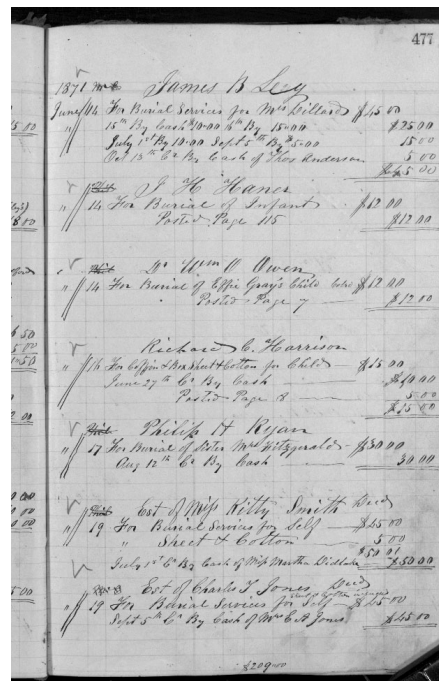 477
1871 James B Ley
June 14 For Burial Services for Mrs Dillard $45.00
15th By Cash $10.00 16th By 15.00 $25.00
July 1st By 10.00 Sept 5th By $5.00 15.00
Oct 13th Cr By Cash of Thos Anderson 5.00
$45.00
J H Haner
" 14 For Burial of Infant $12.00
Posted Page 115 $12.00
Dr Wm O Owen
" 14 For Burial of Effie Gray's Child $12.00
" Posted Page 7 $12.00
Richard C. Harrison
" 16 For Coffin & Box Sheet & Cotton for Child $15.00
June 27th Cr By Cash $10.00
Posted Page 8 5.00
$15.00
Philip H Ryan
" 17 For Burial of Sister Mrs Fitzgerald $30.00
Aug 12th Cr By Cash 30.00
Est of Miss Kitty Smith Decd
" 19 For Burial Services for Self $45.00
Sheet & Cotton 5.00
$50.00
July 1st Cr By Cash of Miss Martha Didlake $50.00
Est of Charles T. Jones, Decd
" 19 For Burial Services for Self $45.00
Sept 5th Cr By Cash of Mrs C A Jones $45.00
$209.00